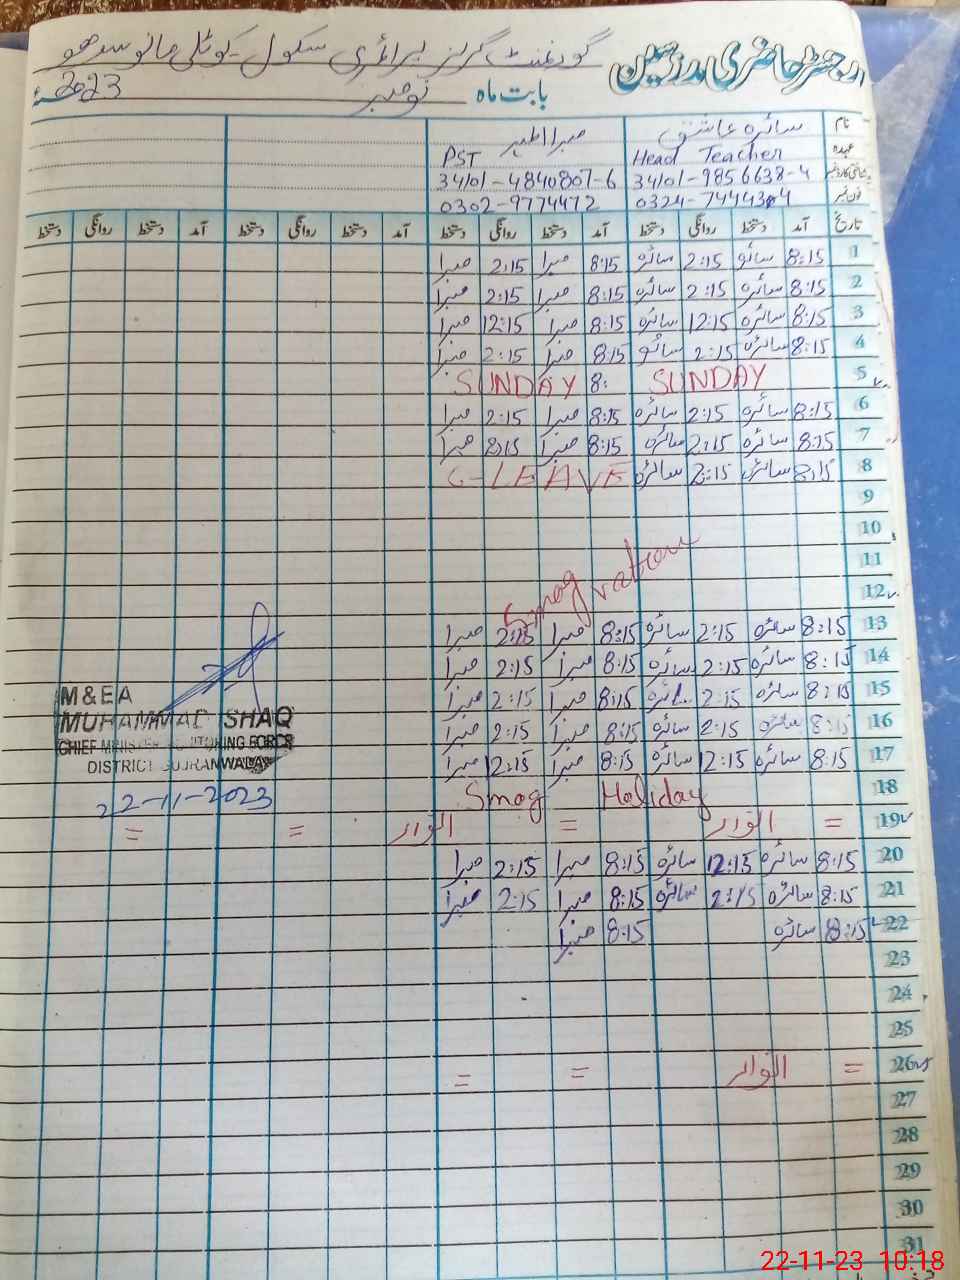 رجسٹر حاضری مدرسین گورنمنٹ گرلز پرائمری سکول - کوٹلی مانو سدھو
بابت ماہ نومبر 2023
نام سائرہ عاشق
عہدہ Head Teacher PST
شناختی کارڈ نمبر 34101-9856638-4 34101-4840807-6
فون نمبر 0302-9774472
تاریخ آمد دستخط روانگی دستخط آمد دستخط روانگی دستخط آمد دستخط روانگی دستخط آمد دستخط روانگی دستخط
1 8:15 سائرہ 2:15 سائرہ 8:15 صبرا 2:15 صبرا
2 8:15 سائرہ 2:15 سائرہ 8:15 صبرا 2:15 صبرا
3 8:15 سائرہ 12:15 سائرہ 8:15 صبرا 12:15 صبرا
4 8:15 سائرہ 2:15 سائرہ 8:15 صبرا 2:15 صبرا
5 SUNDAY 8: SUNDAY
6 8:15 سائرہ 2:15 سائرہ 8:15 صبرا 2:15 صبرا
7 8:15 سائرہ 2:15 سائرہ 8:15 صبرا 2:15 صبرا
8 8:15 سائرہ 2:15 سائرہ C-LEAVE
9
10
11
Smog vacation
12
13 8:15 سائرہ 2:15 سائرہ 8:15 صبرا 2:15 صبرا
14 8:15 سائرہ 2:15 سائرہ 8:15 صبرا 2:15 صبرا
15 8:15 سائرہ 2:15 سائرہ 8:15 صبرا 2:15 صبرا
16 8:15 سائرہ 2:15 سائرہ 8:15 صبرا 2:15 صبرا
17 8:15 سائرہ 12:15 سائرہ 8:15 صبرا 12:15 صبرا
M & E A
MUHAMMAD ISHAQ
CHIEF MINISTER MONITORING FORCE
DISTRICT GUJRANWALA
22-11-2023
18 Smog Holiday
19 = اتوار = اتوار = =
20 8:15 سائرہ 12:15 سائرہ 8:15 صبرا 2:15 صبرا
21 8:15 سائرہ 2:15 سائرہ 8:15 صبرا 2:15 صبرا
22 8:15 سائرہ 8:15 صبرا
23
24
25
26 = اتوار = =
27
28
29
30
31
22-11-23 10:18